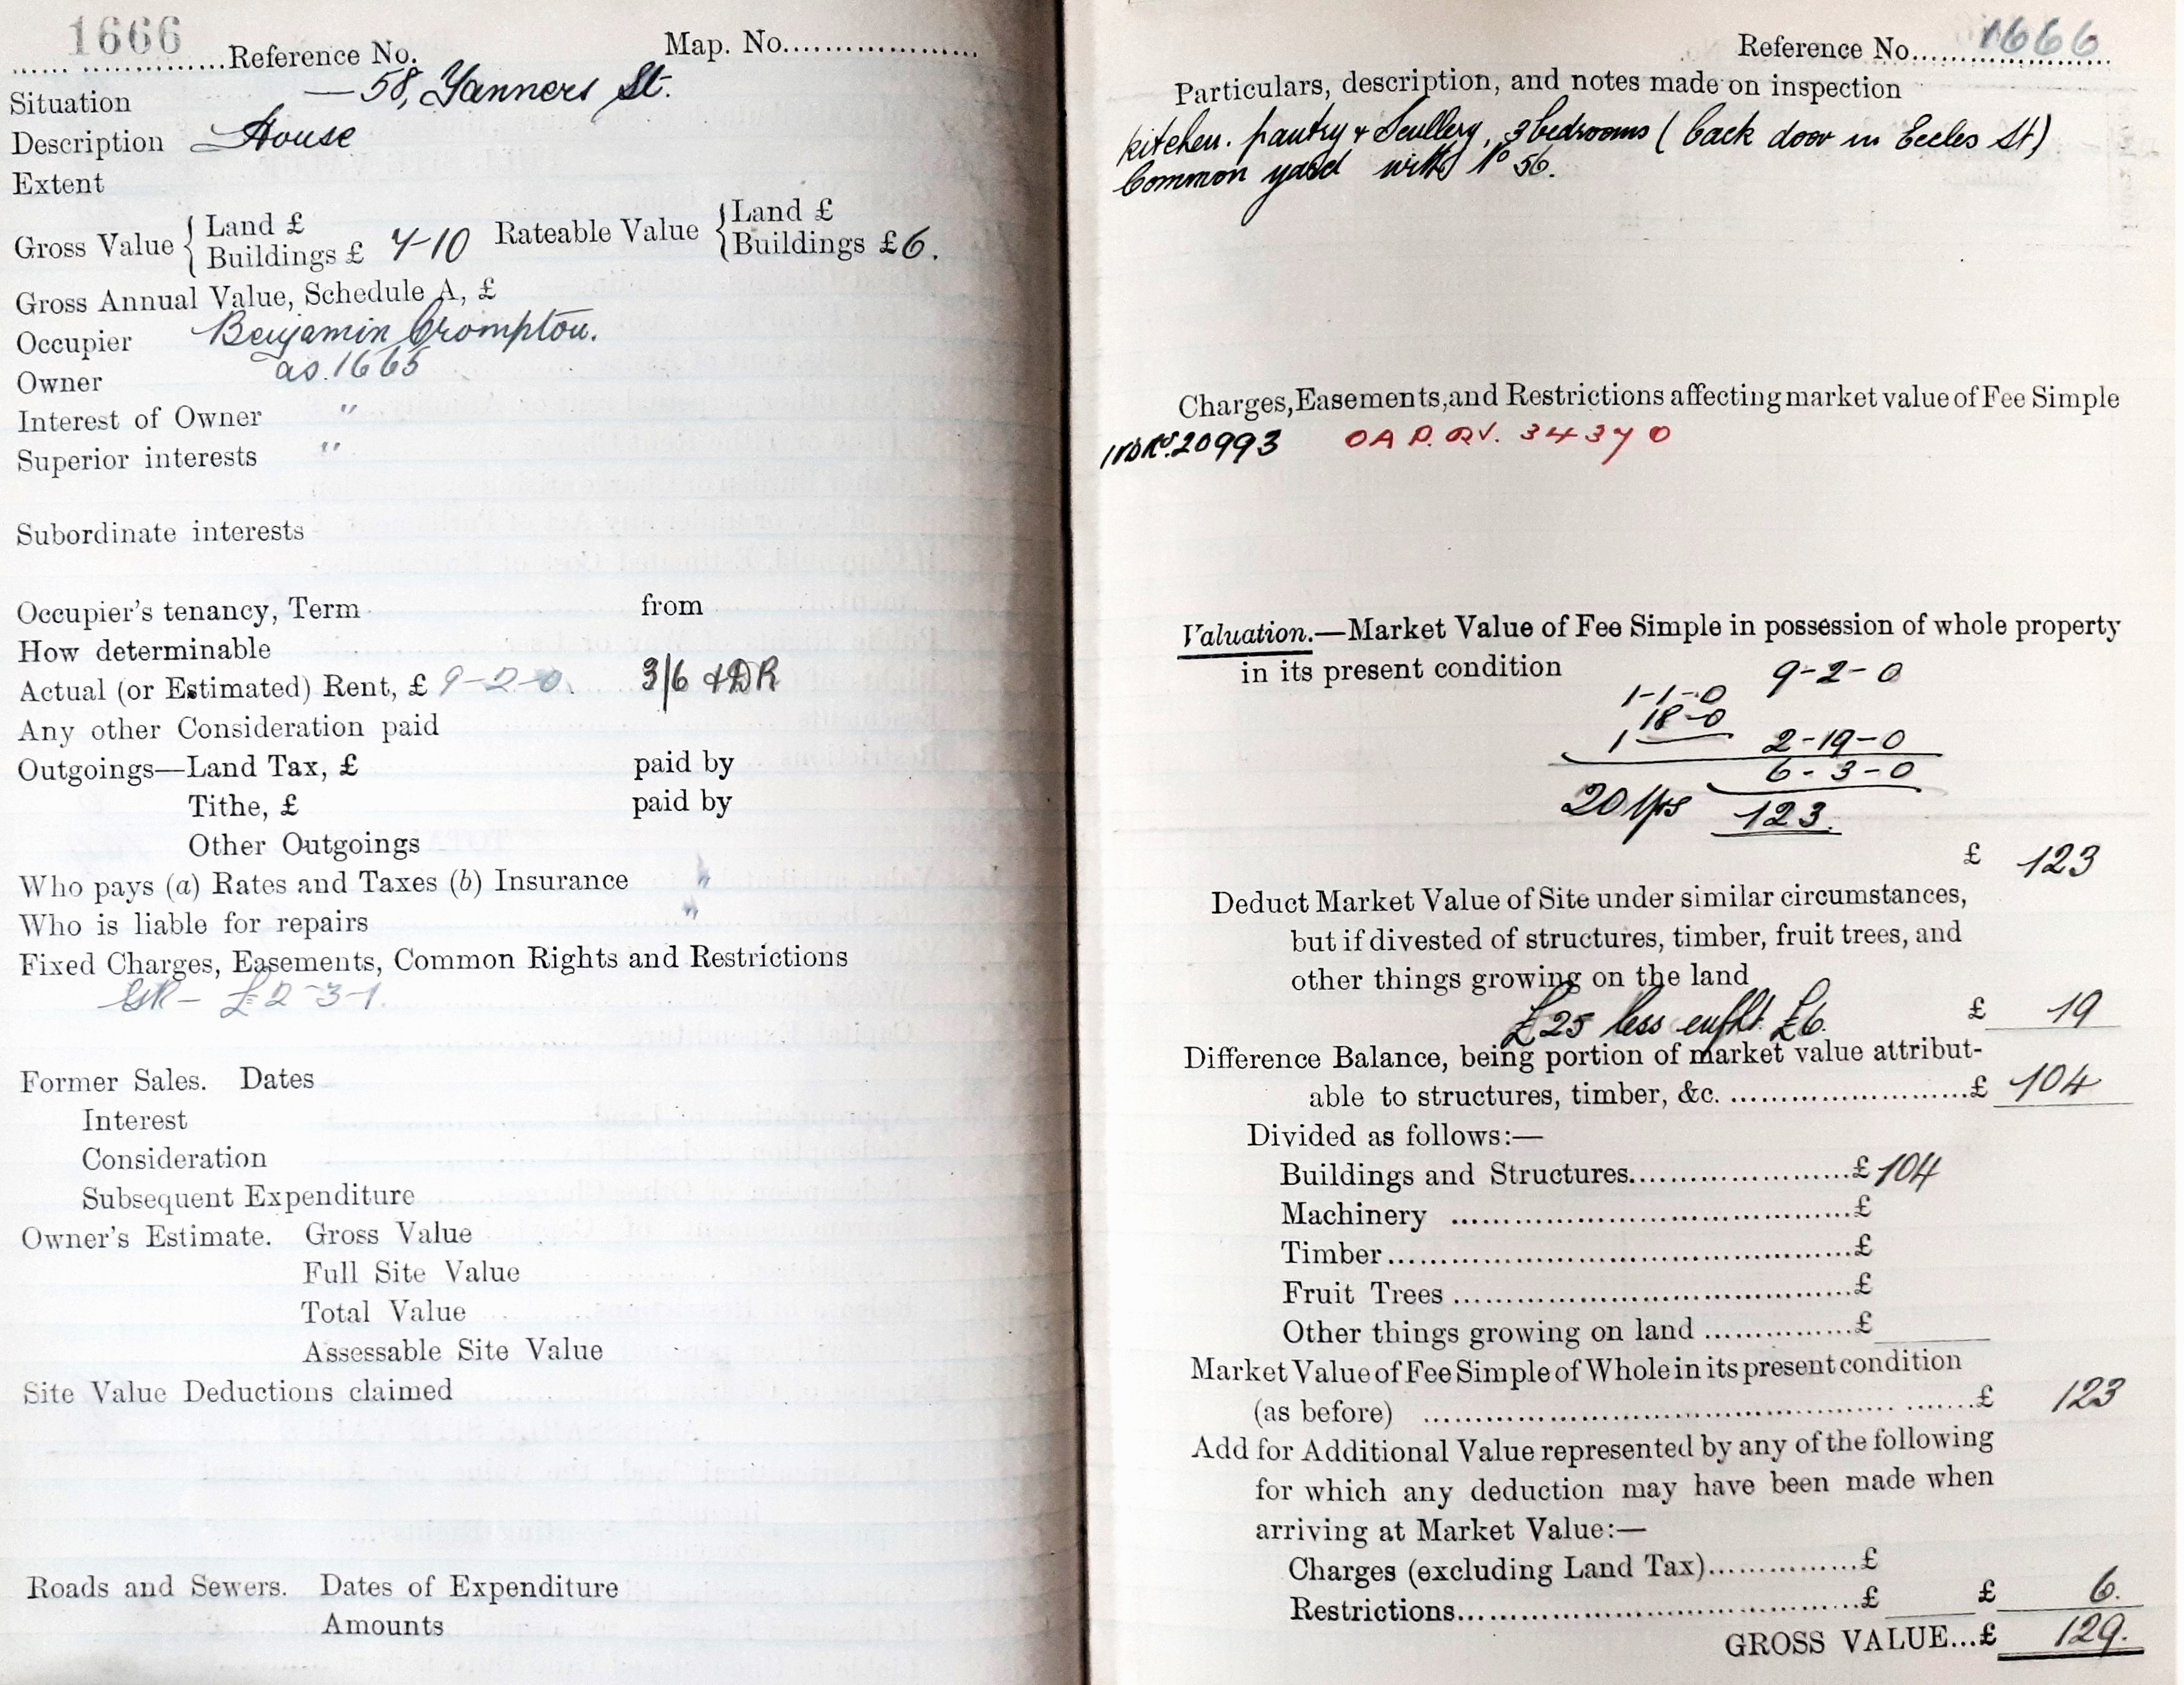 1666
Reference No. Map. No.
Situation — 58, Tanners St.
Description House
Extent
Gross Value { Land £ Rateable Value { Land £
Buildings £ 7-10 Buildings £ 6.
Gross Annual Value, Schedule A, £
Occupier Benjamin Crompton.
Owner as. 1665
Interest of Owner "
Superior interests "
Subordinate interests
Occupier's tenancy, Term from
How determinable
Actual (or Estimated) Rent, £ 9-2-0. 3/6 + DR
Any other Consideration paid
Outgoings—Land Tax, £ paid by
Tithe, £ paid by
Other Outgoings
Who pays (a) Rates and Taxes (b) Insurance "
Who is liable for repairs "
Fixed Charges, Easements, Common Rights and Restrictions
GR – £2-3-1.
Former Sales. Dates
Interest
Consideration
Subsequent Expenditure
Owner's Estimate. Gross Value
Full Site Value
Total Value
Assessable Site Value
Site Value Deductions claimed
Roads and Sewers. Dates of Expenditure
Amounts
Reference No. 1666
Particulars, description, and notes made on inspection
kitchen. pantry & Scullery, 3 bedrooms (back door in Eccles St)
Common yard with No 56.
Charges, Easements, and Restrictions affecting market value of Fee Simple
20993 34370
Valuation.—Market Value of Fee Simple in possession of whole property
in its present condition 9-2-0
1-1-0
18-0
1 — 2-19-0
6-3-0
20 Yrs 123.
£ 123
Deduct Market Value of Site under similar circumstances,
but if divested of structures, timber, fruit trees, and
other things growing on the land
£25 less £6. £ 19
Difference Balance, being portion of market value attribut-
able to structures, timber, &c. £ 104
Divided as follows:—
Buildings and Structures £ 104
Machinery £
Timber £
Fruit Trees £
Other things growing on land £
Market Value of Fee Simple of Whole in its present condition
(as before) £ 123
Add for Additional Value represented by any of the following
for which any deduction may have been made when
arriving at Market Value:—
Charges (excluding Land Tax) £
Restrictions £ £ 6.
GROSS VALUE...£ 129.